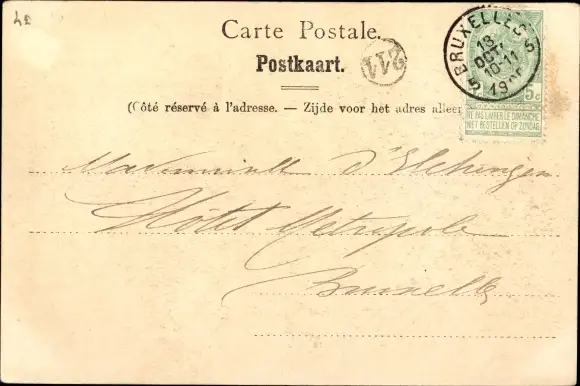 Carte Postale.
Postkaart.
(Côté réservé à l'adresse. — Zijde voor het adres alleen
BRUXELLES 5
13
OCT
10-11
5
5c
NE PAS LIVRER LE DIMANCHE
NIET BESTELLEN OP ZONDAG
Mademoiselle d'Elchingen
Hôtel Métropole
Bruxelles